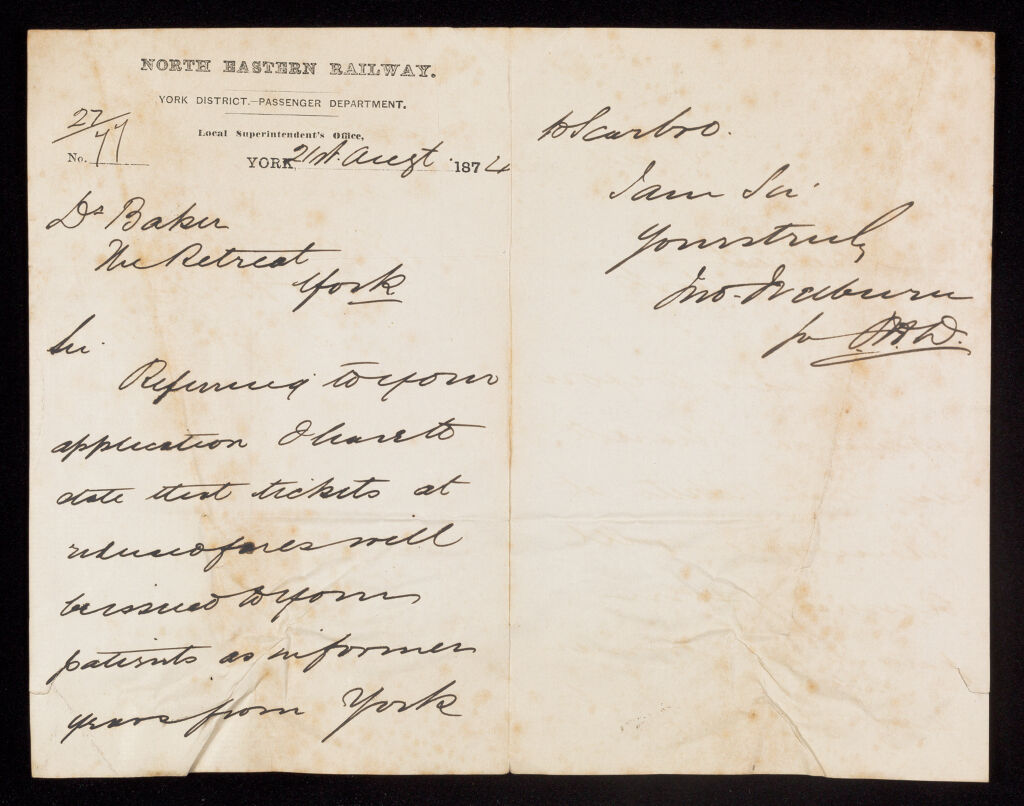 NORTH EASTERN RAILWAY.
YORK DISTRICT.—PASSENGER DEPARTMENT.
Local Superintendent's Office,
27/77
No.
YORK, 21st Augt 1874
Dr Baker
The Retreat
York
Sir
Referring to your
application I have to
state that tickets at
reduced fares will
be issued to your
patients as in former
years from York
to Scarbro.
I am Sir
Yours truly
Jno.
for